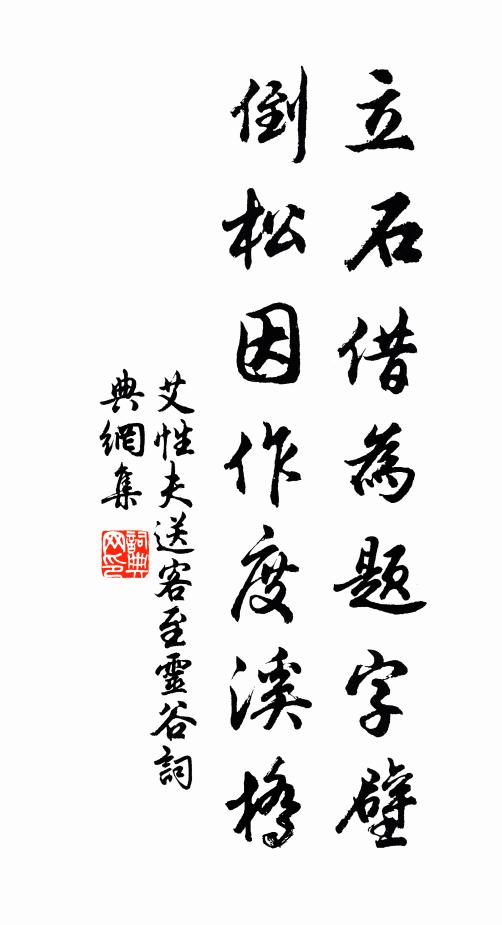 立石借為題字壁
倒松因作度溪橋
艾性夫送客至靈谷詞
典網集
詞典网印